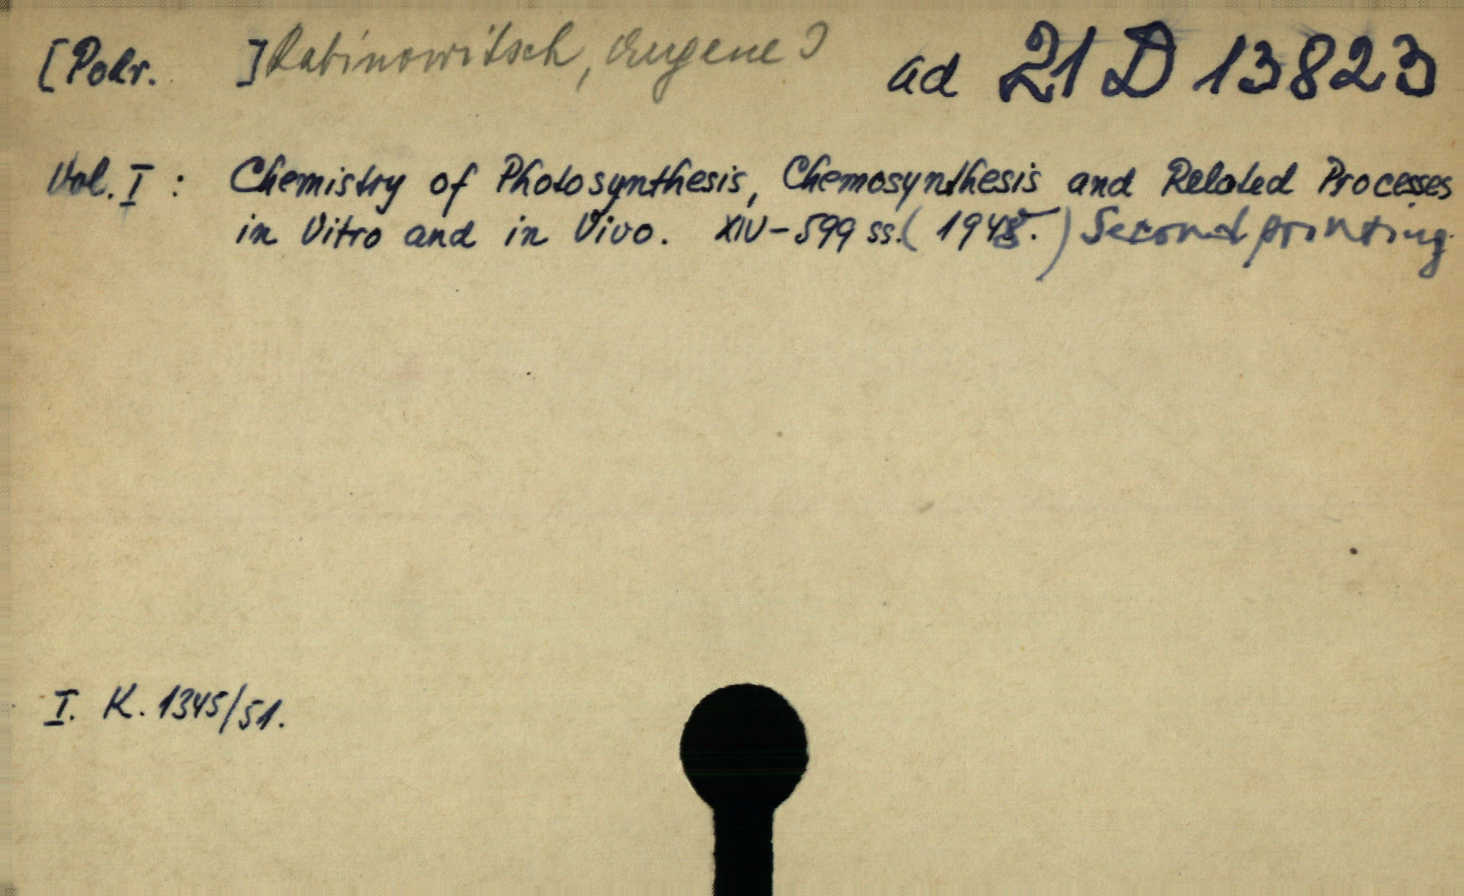 [Pokr. ] Rabinowitsch, Eugene I ad 21 D 13823
Vol. I : Chemistry of Photosynthesis, Chemosynthesis and Related Processes
in Vitro and in Vivo. XIV-599 ss. (1948.) Second printing.
I. K. 1345/51.